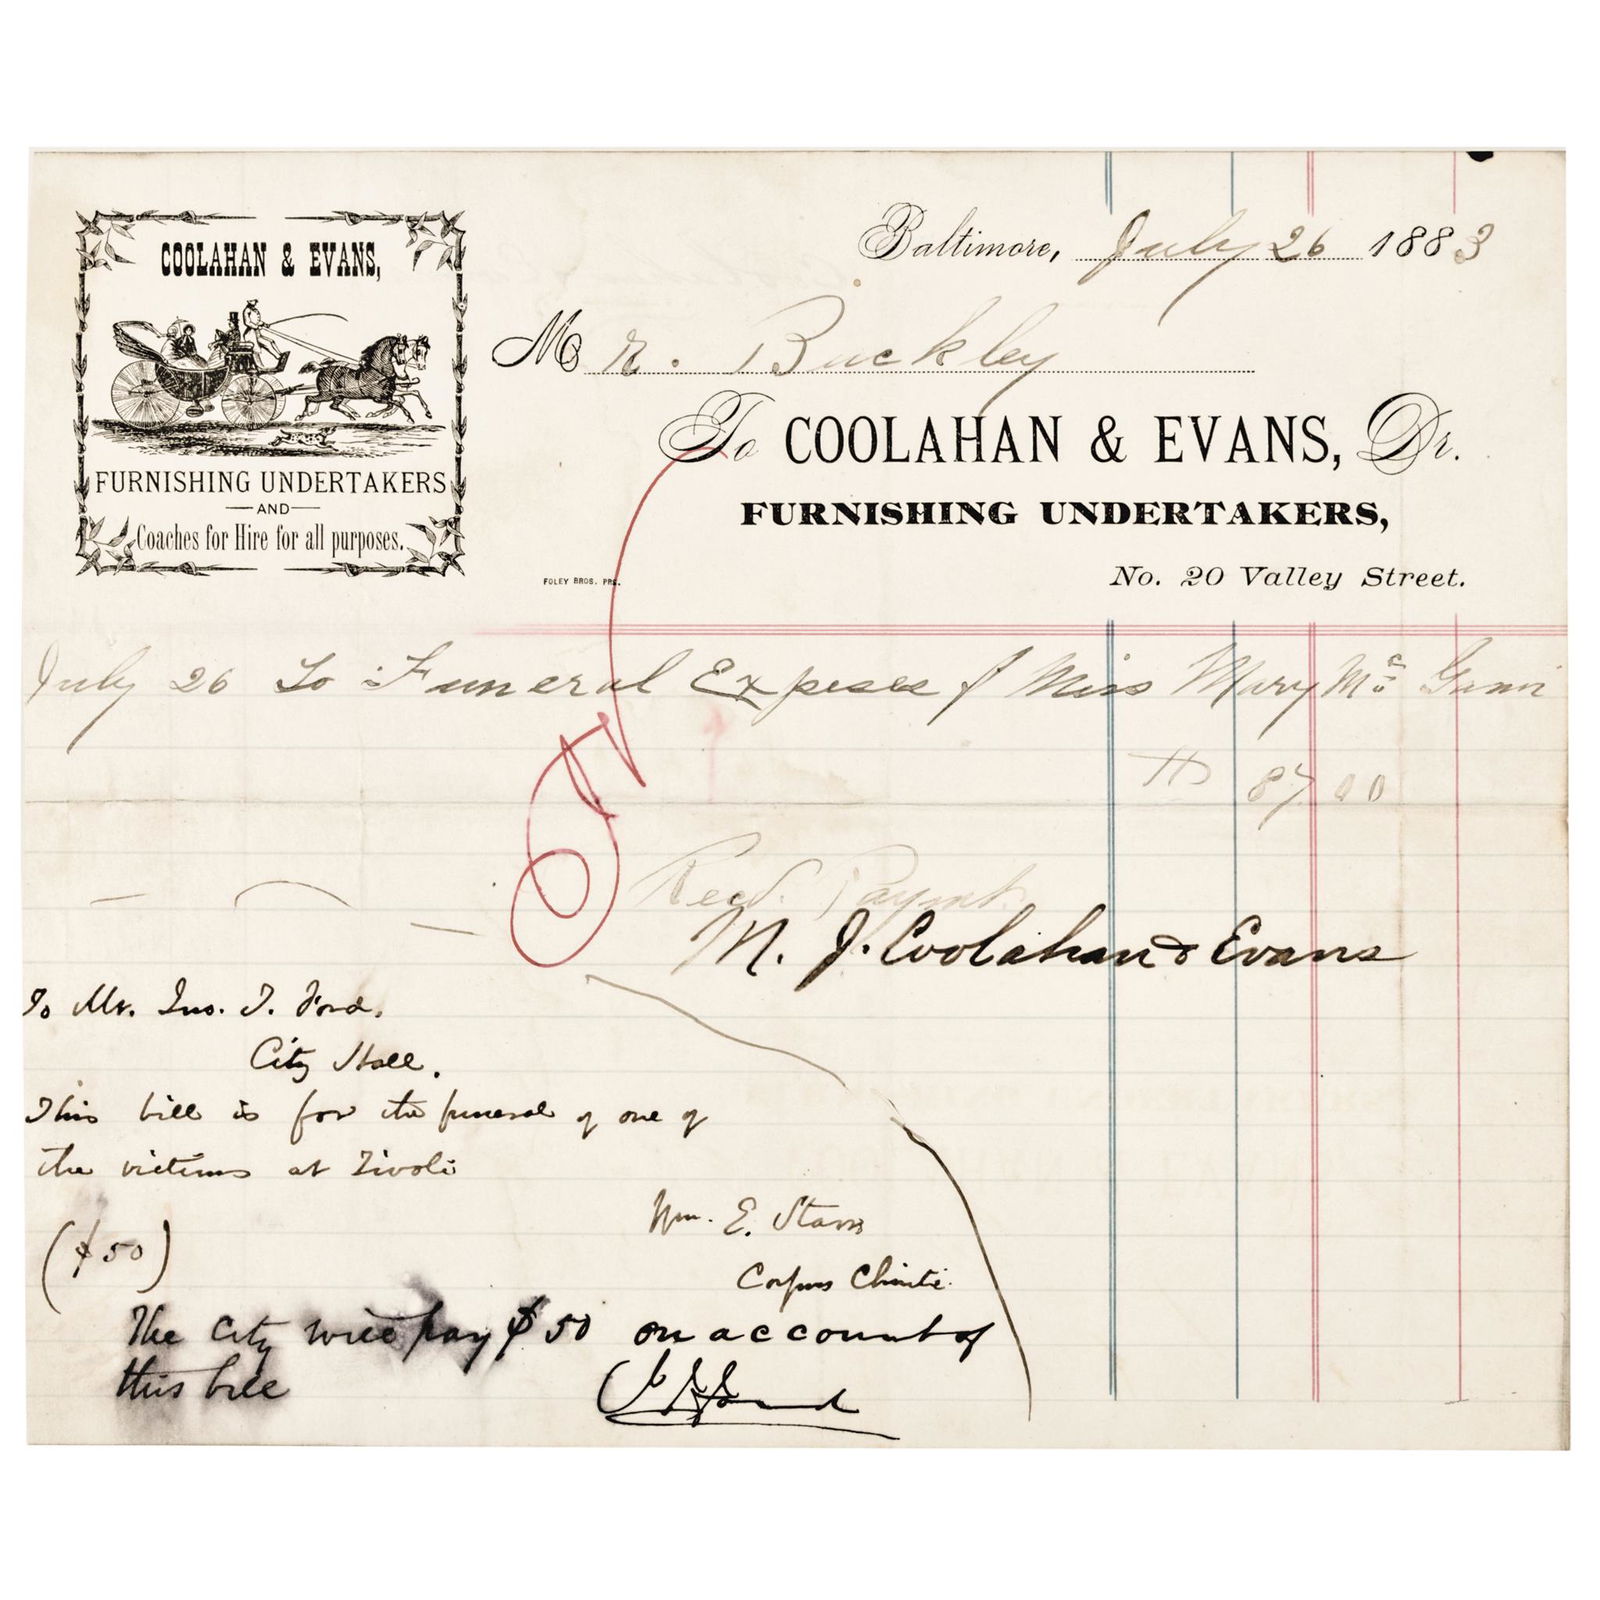 COOLAHAN & EVANS,
FURNISHING UNDERTAKERS
AND
Coaches for Hire for all purposes.
Baltimore, July 26 1883
Mr. Buckley
To COOLAHAN & EVANS, Dr.
FURNISHING UNDERTAKERS,
FOLEY BROS. PRS.
No. 20 Valley Street.
July 26 To Funeral Expeses of Miss Mary Mc
87 00
Recd. Paymt.
M. J. Coolahan & Evans
To Mr. Jno. T. Ford,
City Hall.
This bill is for the funeral of one of
the victims at Tivoli
Wm. E. Starr
Corpus Christi
($50)
The City will pay $50 on account of
this bill
J. T. Ford